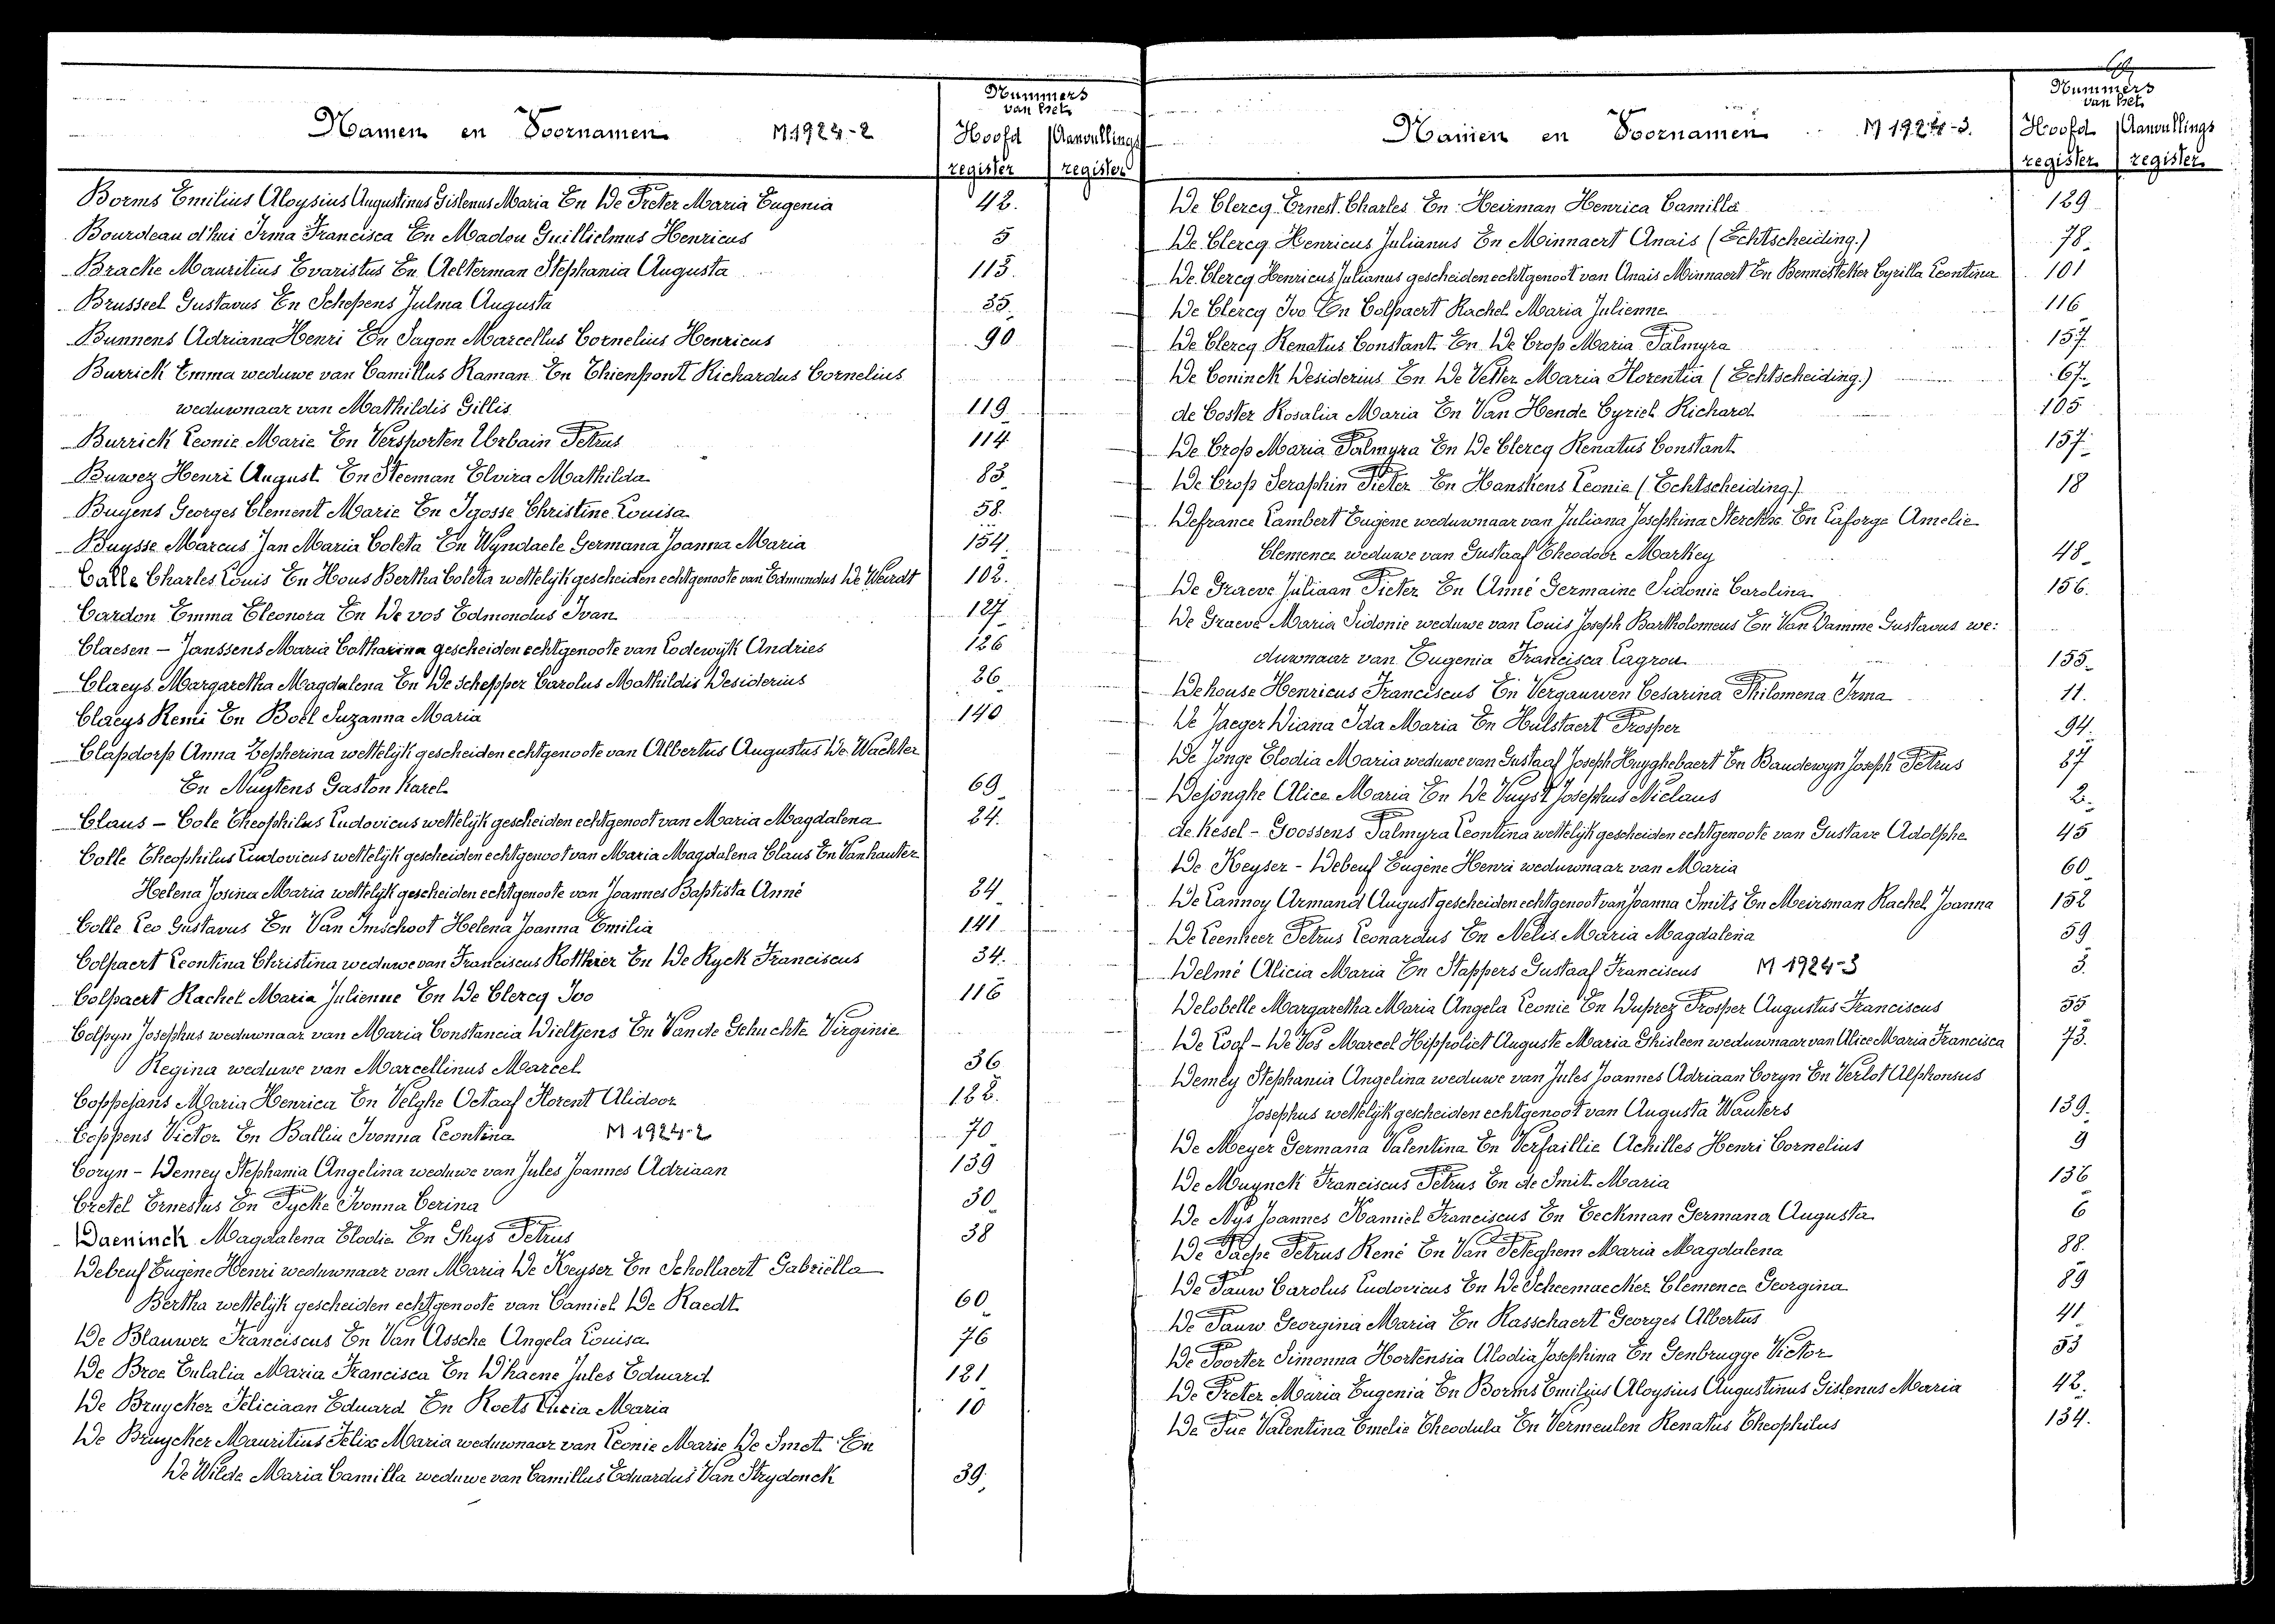 Namen en Voornamen M 1924-2
Nummers van het
Hoofd register
Aanvullings register
Borms Emilius Aloysius Augustinus Gislenus Maria En De Preter Maria Eugenia 42.
Bourdeau d'hui Irma Francisca En Madou Guillielmus Henricus 5
Bracke Mauritius Evaristus En Aelterman Stephania Augusta 113.
Brusseel Gustavus En Schepens Julma Augusta 35.
Bunnens Adriana Henri En Sagon Marcellus Cornelius Henricus 90
Burrick Emma weduwe van Camillus Raman En Thienpont Richardus Cornelius
weduwnaar van Mathildis Gillis 119
Burrick Leonie Marie En Versporten Urbain Petrus 114
Buwez Henri August En Steeman Elvira Mathilda 83
Buyens Georges Clement Marie En Jgosse Christine Louisa 58.
Buysse Marcus Jan Maria Coleta En Wyndaele Germana Joanna Maria 154
Calle Charles Louis En Hous Bertha Coleta wettelijk gescheiden echtgenoote van Edmundus De Weirdt 102.
Cardon Emma Eleonora En De vos Edmondus Ivan 127
Claesen - Janssens Maria Catharina gescheiden echtgenoote van Lodewijk Andries 126
Claeys Margaretha Magdalena En De schepper Carolus Mathildis Desiderius 26
Claeys Remi En Boel Suzanna Maria 140
Clapdorp Anna Zepherina wettelijk gescheiden echtgenoote van Albertus Augustus De Wachter
En Nuytens Gaston Karel 69
Claus - Cole Theophilus Ludovicus wettelijk gescheiden echtgenoot van Maria Magdalena 24.
Colle Theophilus Ludovicus wettelijk gescheiden echtgenoot van Maria Magdalena Claus En Vanhauter
Helena Josina Maria wettelijk gescheiden echtgenoote van Joannes Baptista Anné 24
Colle Leo Gustavus En Van Imschoot Helena Joanna Emilia 141
Colpaert Leontina Christina weduwe van Franciscus Rotthier En De Ryck Franciscus 34.
Colpaert Rachel Maria Julienne En De Clercq Ivo 116
Colpyn Josephus weduwnaar van Maria Constancia Dieltjens En Van de Gehuchte Virginie
Regina weduwe van Marcellinus Marcel 36
Coppejans Maria Henrica En Velghe Octaaf Florent Alidoor 122.
Coppens Victor En Balliu Ivonna Leontina M 1924-2 70
Coryn - Demey Stephania Angelina weduwe van Jules Joannes Adriaan 139
Cretel Ernestus En Pycke Ivonna Cerina 30
Daeninck Magdalena Elodie En Ghys Petrus 38
Debeuf Eugène Henri weduwnaar van Maria De Keyser En Schollaert Gabriëlla
Bertha wettelijk gescheiden echtgenoote van Camiel De Raedt 60
De Blauwer Franciscus En Van Assche Angela Louisa 76
De Broe Eulalia Maria Francisca En D'haene Jules Eduard 121
De Bruycker Feliciaan Eduard En Roets Lucia Maria 10
De Bruycker Mauritius Felix Maria weduwnaar van Leonie Marie De Smet En
De Wilde Maria Camilla weduwe van Camillus Eduardus Van Strydonck 39
Namen en Voornamen M 1924-3.
Nummers van het
Hoofd register
Aanvullings register
De Clercq Ernest Charles En Heirman Henrica Camilla 129
De Clercq Henricus Julianus En Minnaert Anais (Echtscheiding.) 78
De Clercq Henricus Julianus gescheiden echtgenoot van Anais Minnaert En Bennesteker Cyrilla Leontina 101
De Clercq Ivo En Colpaert Rachel Maria Julienne 116
De Clercq Renatus Constant En De Crop Maria Palmyra 157
De Coninck Desiderius En De Vetter Maria Florentia (Echtscheiding.) 67
de Coster Rosalia Maria En Van Hende Cyriel Richard 105
De Crop Maria Palmyra En De Clercq Renatus Constant 157
De Crop Seraphin Pieter En Hanskens Leonie (Echtscheiding.) 18
Defrance Lambert Eugène weduwnaar van Juliana Josephina Sterckx En Laforge Amelie
Clemence weduwe van Gustaaf Theodoor Markey 48
De Graeve Juliaan Pieter En Anné Germaine Sidonie Carolina 156.
De Graeve Maria Sidonie weduwe van Louis Joseph Bartholomeus En Van Damme Gustavus we:
duwnaar van Eugenia Francisca Lagrou 155
Dehouse Henricus Franciscus En Vergauwen Cesarina Philomena Irma 11.
De Jaeger Diana Ida Maria En Hulstaert Prosper 94.
De Jonge Elodia Maria weduwe van Gustaaf Joseph Huyghebaert En Baudewyn Joseph Petrus 87
Dejonghe Alice Maria En De Vuyst Josephus Niclaus 2
de Kesel - Goossens Palmyra Leontina wettelijk gescheiden echtgenoote van Gustave Adolphe 45
De Keyser - Debeuf Eugène Henri weduwnaar van Maria 60
De Lannoy Armand August gescheiden echtgenoot van Joanna Smits En Meirsman Rachel Joanna 152
De Leenheer Petrus Leonardus En Nelis Maria Magdalena 59
Delmé Alicia Maria En Stappers Gustaaf Franciscus M 1924-3 3.
Delobelle Margaretha Maria Angela Leonie En Duprez Prosper Augustus Franciscus 55
De Loof - De Vos Marcel Hippoliet Auguste Maria Ghisleen weduwnaar van Alice Maria Francisca 73.
Demey Stephania Angelina weduwe van Jules Joannes Adriaan Coryn En Verlot Alphonsus
Josephus wettelijk gescheiden echtgenoot van Augusta Wauters 139.
De Meyer Germana Valentina En Verfaillie Achilles Henri Cornelius 9
De Muynck Franciscus Petrus En de Smit Maria 136
De Nys Joannes Kamiel Franciscus En Eeckman Germana Augusta 6
De Paepe Petrus René En Van Peteghem Maria Magdalena 88.
De Pauw Carolus Ludovicus En De Scheemaecker Clemence Georgina 89
De Pauw Georgina Maria En Rasschaert Georges Albertus 41.
De Poorter Simonna Hortensia Alodia Josephina En Genbrugge Victor 53
De Preter Maria Eugenia En Borms Emilius Aloysius Augustinus Gislenus Maria 42.
De Pue Valentina Emelie Theodula En Vermeulen Renatus Theophilus 134.